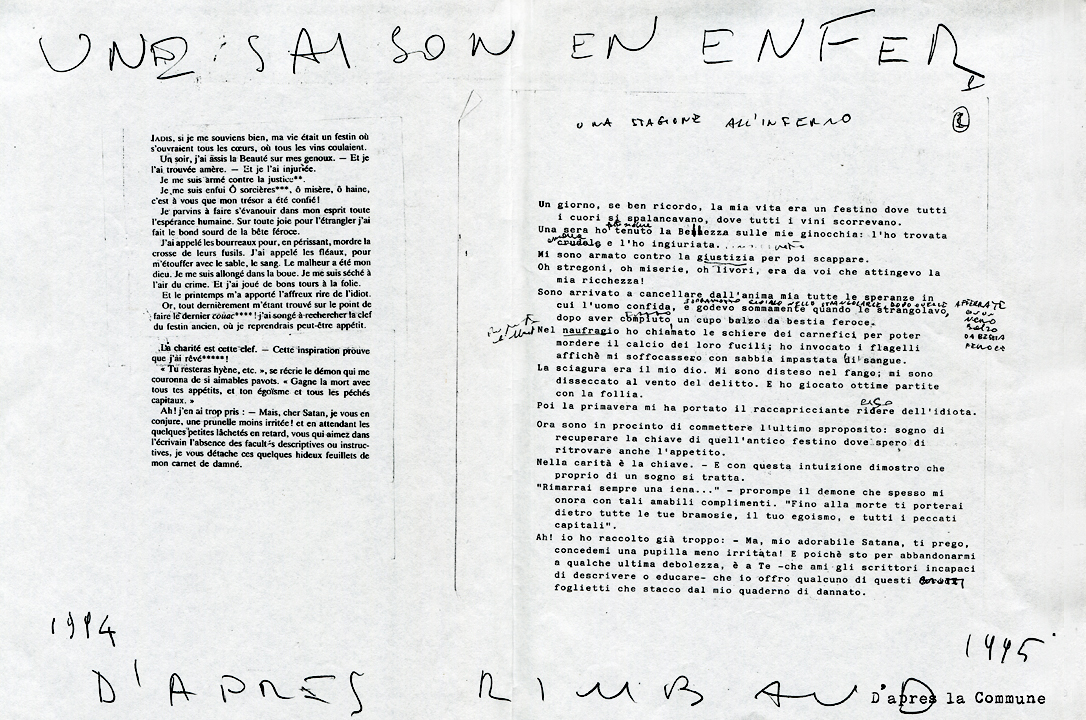 UNE SAISON EN ENFER
UNA STAGIONE ALL'INFERNO
1
JADIS, si je me souviens bien, ma vie était un festin où
s'ouvraient tous les cœurs, où tous les vins coulaient.
Un soir, j'ai assis la Beauté sur mes genoux. — Et je
l'ai trouvée amère. — Et je l'ai injuriée.
Je me suis armé contre la justice**.
Je me suis enfui Ô sorcières***, ô misère, ô haine,
c'est à vous que mon trésor a été confié!
Je parvins à faire s'évanouir dans mon esprit toute
l'espérance humaine. Sur toute joie pour l'étrangler j'ai
fait le bond sourd de la bête féroce.
J'ai appelé les bourreaux pour, en périssant, mordre la
crosse de leurs fusils. J'ai appelé les fléaux, pour
m'étouffer avec le sable, le sang. Le malheur a été mon
dieu. Je me suis allongé dans la boue. Je me suis séché à
l'air du crime. Et j'ai joué de bons tours à la folie.
Et le printemps m'a apporté l'affreux rire de l'idiot.
Or, tout dernièrement m'étant trouvé sur le point de
faire le dernier couac****! j'ai songé à rechercher la clef
du festin ancien, où je reprendrais peut-être appétit.
La charité est cette clef. — Cette inspiration prouve
que j'ai rêvé*****!
« Tu resteras hyène, etc. », se récrie le démon qui me
couronna de si aimables pavots. « Gagne la mort avec
tous tes appétits, et ton égoïsme et tous les péchés
capitaux. »
Ah! j'en ai trop pris : — Mais, cher Satan, je vous en
conjure, une prunelle moins irritée! et en attendant les
quelques petites lâchetés en retard, vous qui aimez dans
l'écrivain l'absence des facultés descriptives ou instruc-
tives, je vous détache ces quelques hideux feuillets de
mon carnet de damné.
Un giorno, se ben ricordo, la mia vita era un festino dove tutti
i cuori si spalancavano, dove tutti i vini scorrevano.
Una sera ho tenuto la Bellezza sulle mie ginocchia: l'ho trovata
crudele e l'ho ingiuriata.
Mi sono armato contro la giustizia per poi scappare.
Oh stregoni, oh miserie, oh livori, era da voi che attingevo la
mia ricchezza!
Sono arrivato a cancellare dall'anima mia tutte le speranze in
cui l'uomo confida, e godevo sommamente quando le strangolavo,
dopo aver compiuto un cupo balzo da bestia feroce.
AFFERRATE
BALZO
DA BESTIA
FEROCE
Nel naufragio ho chiamato le schiere dei carnefici per poter
mordere il calcio dei loro fucili; ho invocato i flagelli
affichè mi soffocassero con sabbia impastata di sangue.
La sciagura era il mio dio. Mi sono disteso nel fango; mi sono
disseccato al vento del delitto. E ho giocato ottime partite
con la follia.
Poi la primavera mi ha portato il raccapricciante ridere dell'idiota.
Ora sono in procinto di commettere l'ultimo sproposito: sogno di
recuperare la chiave di quell'antico festino dove spero di
ritrovare anche l'appetito.
Nella carità è la chiave. - E con questa intuizione dimostro che
proprio di un sogno si tratta.
"Rimarrai sempre una iena..." - prorompe il demone che spesso mi
onora con tali amabili complimenti. "Fino alla morte ti porterai
dietro tutte le tue bramosie, il tuo egoismo, e tutti i peccati
capitali".
Ah! io ho raccolto già troppo: - Ma, mio adorabile Satana, ti prego,
concedemi una pupilla meno irritata! E poichè sto per abbandonarmi
a qualche ultima debolezza, è a Te -che ami gli scrittori incapaci
di descrivere o educare- che io offro qualcuno di questi
foglietti che stacco dal mio quaderno di dannato.
1994
1995
D'APRES RIMBAUD
D'apres la Commune